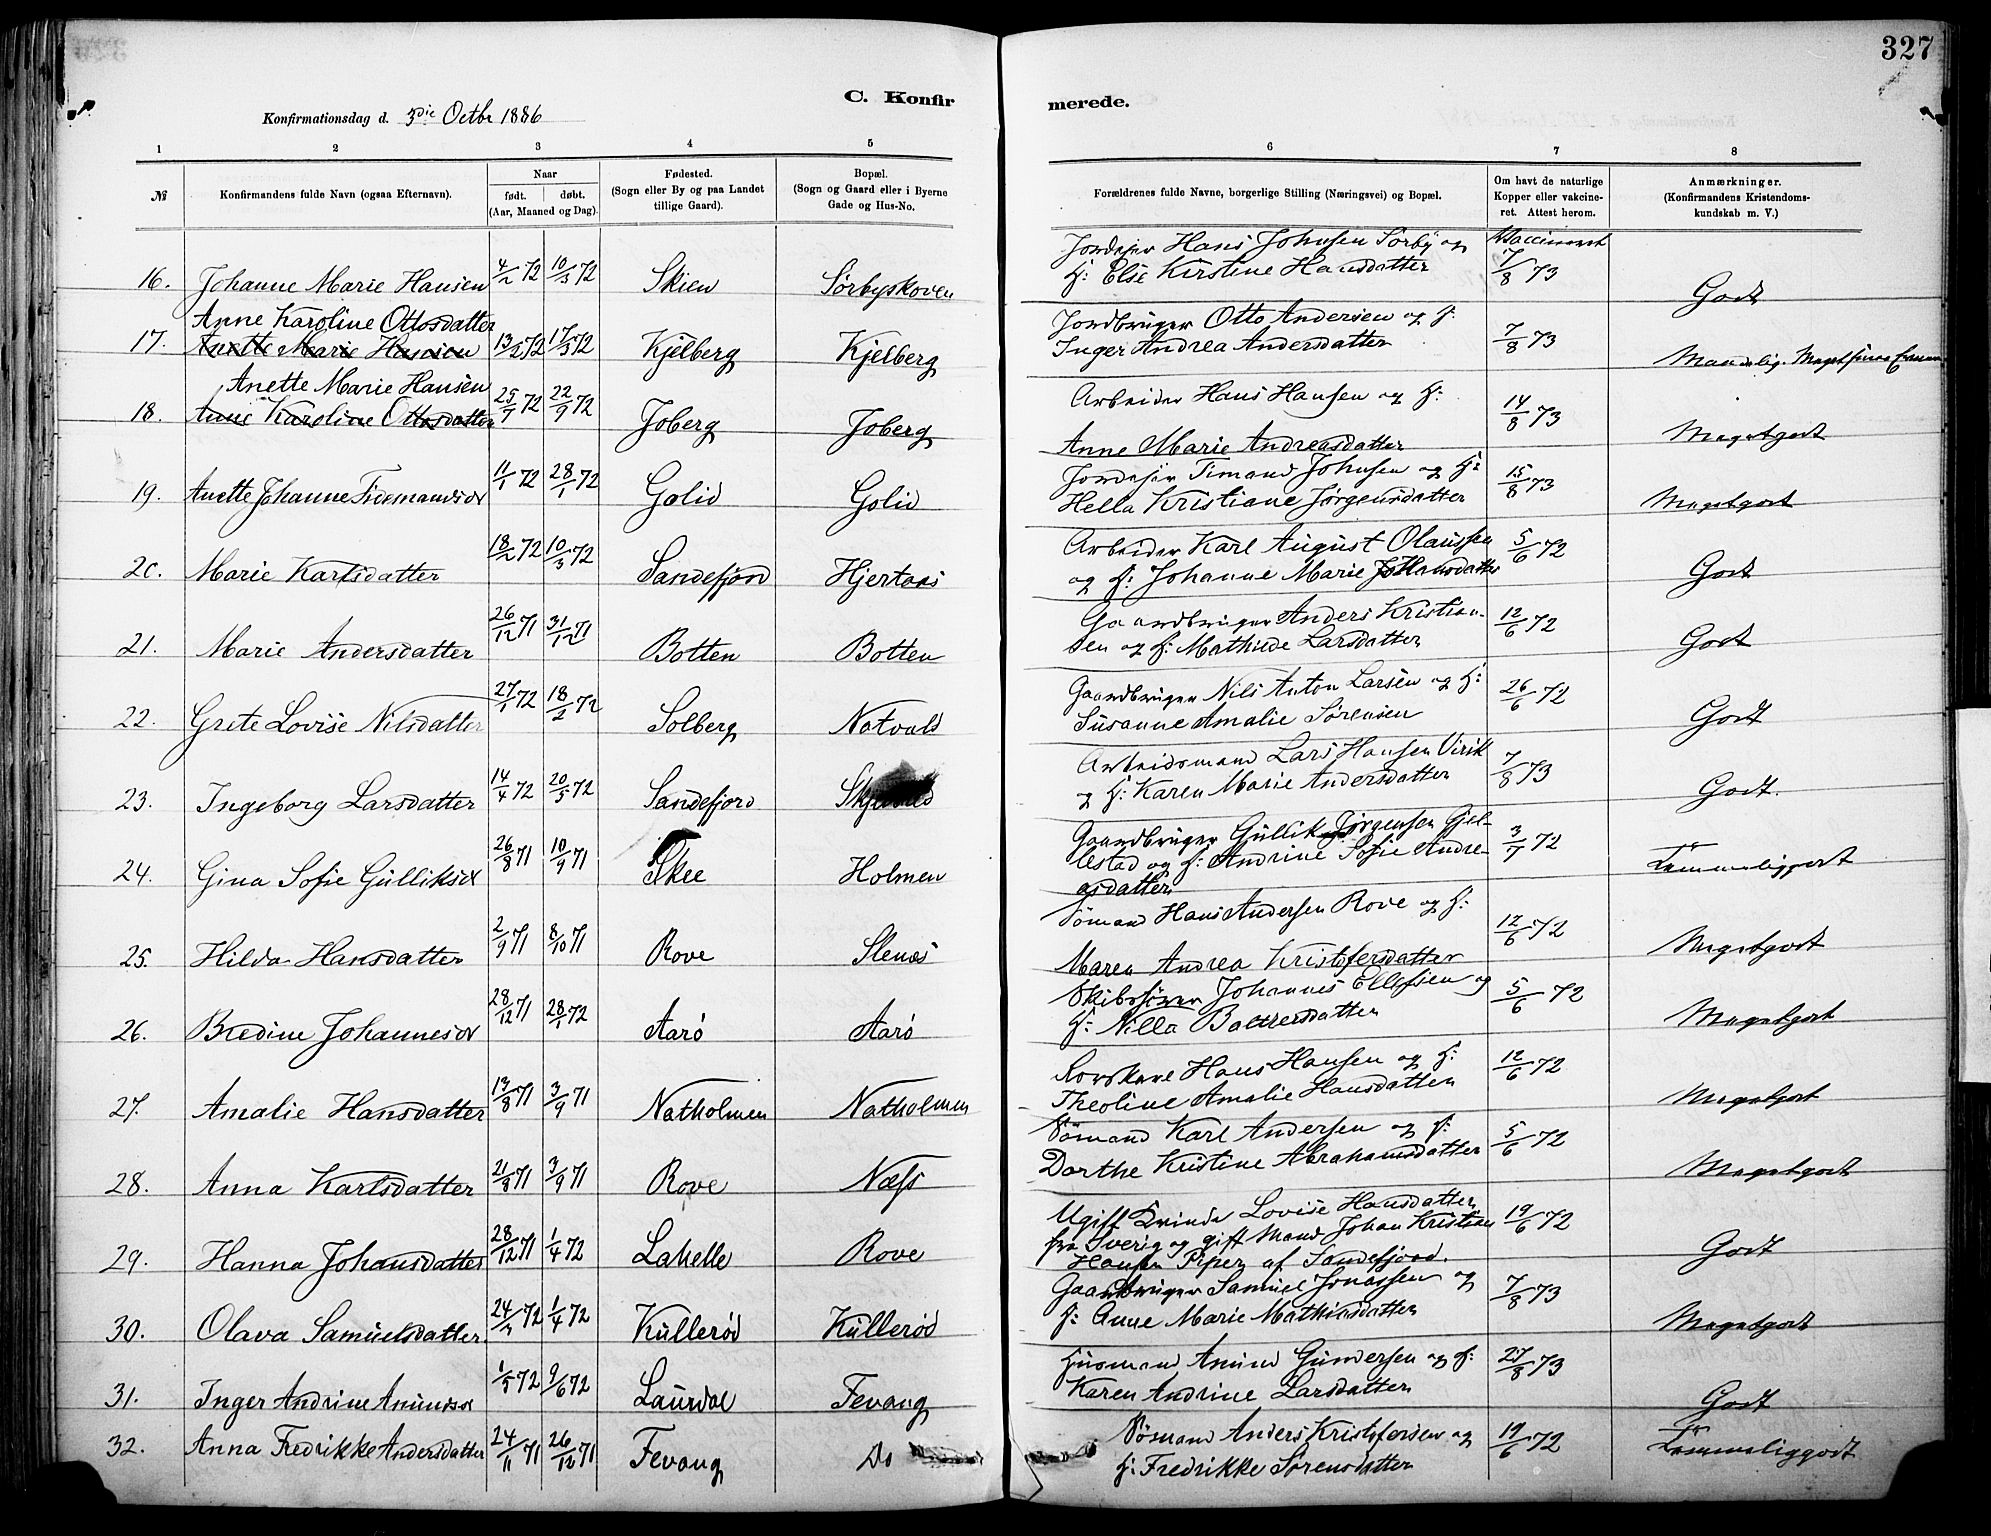 327
C. Konfir
merede.
Konfirmationsdag d. 3die Octbr 1886
1 2 3 4 5 6 7 8
№
Konfirmandens fulde Navn (ogsaa Efternavn).
Naar
født. døbt.
(Aar, Maaned og Dag).
Fødested.
(Sogn eller By og paa Landet
tillige Gaard).
Bopæl.
(Sogn og Gaard eller i Byerne
Gade og Hus-No.
Forældrenes fulde Navne, borgerlige Stilling (Næringsvei) og Bopæl.
Om havt de naturlige
Kopper eller vakcine-
ret. Attest herom.
Anmærkninger.
(Konfirmandens Kristendoms-
kundskab m. V.)
16. Johanne Marie Hansen 4/2 72 10/3 72 Skien Sørbyskoven
Jordejer Hans Johnsen Sørby og
f: Else Kirstine Hansdatter
Vaccineret
7/8 73 Godt
Anne Karoline Ottosdatter
17. Anette Marie Hansen 13/2 72 17/3 72 Kjelberg Kjelberg
Jordbruger Otto Andersen og f:
Inger Andrea Andersdatter 7/8 73
Anette Marie Hansen
18. Anne Karoline Ottosdatter 25/7 72 22/9 72 Joberg Joberg
Arbeider Hans Hansen og f:
Anne Marie Andreasdatter 14/8 73 Megetgodt
19. Anette Johanne 11/1 72 28/1 72 Golid Golid
Jordejer Timand Johnsen og f:
Hella Kristiane Jørgensdatter 15/8 73 Megetgodt
20. Marie Karlsdatter 18/2 72 10/3 72 Sandefjord Hjertnes
Arbeider Karl August Olaussen
og f: Johanne Marie Hansdatter 5/6 72 Godt
21. Marie Andersdatter 26/12 71 31/12 71 Botten Botten
Gaardbruger Anders Kristian-
sen og f: Mathilde Larsdatter 12/6 72 Godt
22. Grete Lovise Nilsdatter 27/1 72 18/2 72 Solberg Natvald
Gaardbruger Nils Anton Larsen og f:
Susanne Amalie Sørensen 26/6 72 Godt
23. Ingeborg Larsdatter 14/4 72 20/5 72 Sandefjord
Arbeidsmand Lars Hansen Virik
og f: Karen Marie Andersdatter 7/8 73 Godt.
24. Gina Sofie Gulliksd 26/8 71 10/9 71 Skee Holmen
Gaardbruger Gullik Jørgensen Gjel-
lestad og f: Andrine Sofie Andre-
asdatter 3/7 72 Temmeliggodt
25. Hilda Hansdatter 2/9 71 8/10 71 Rove Stenås
Sømand Hans Andersen Rove og f:
Maren Andrea Kristofersdatter 12/6 72 Megetgodt
26. Bredine Johannesd 28/12 71 28/1 72 Aarø Aarø
Skibsfører Johannes Ellefsen og
f: Nilla Baltzersdatter 5/6 72 Megetgodt
27. Amalie Hansdatter 13/8 71 3/9 71 Natholmen Natholmen
Rorskarl Hans Hansen og f:
Theoline Amalie Hansdatter 12/6 72 Megetgodt
28. Anna Karlsdatter 21/8 71 3/9 71 Rove Næss
Sømand Karl Andersen og f:
Dorthe Kristine Abrahamsdatter 5/6 72 Megetgodt
29. Hanna Johansdatter 28/12 71 1/4 72 Lahelle Rove
Ugift Kvinde Lovise Hansdatter
fra Sverig og gift Mand Johan Kristian
Hansen Piper af Sandefjord. 19/6 72 Godt
30. Olava Samuelsdatter 24/3 72 1/4 72 Kullerød Kullerød
Gaardbruger Samuel Jonassen og
f: Anne Marie Mathiasdatter 7/8 73 Megetgodt
31. Inger Andrine Amundsd 1/5 72 9/6 72 Laurdal Fevang
Husmand Amund Gundersen og f:
Karen Andrine Larsdatter 27/8 73 Godt
32. Anna Fredrikke Andersdatter 24/11 71 26/12 71 Fevang Do
Sømand Anders Kristofersen og
f: Fredrikke Sørensdatter 19/6 72 Temmeliggodt